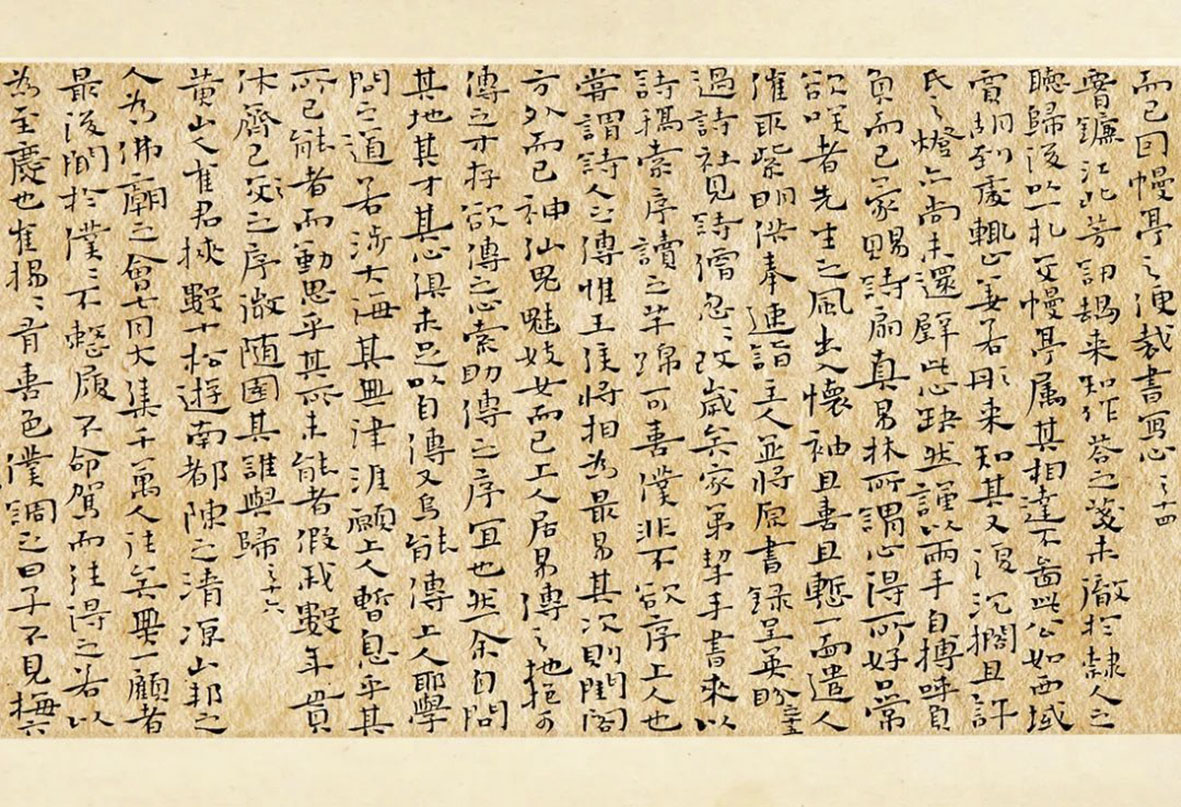 而已回幔亭之便裁書寫心之十四
雷鐮江北芳訊曷来知作荅之箋未澈於隸人之
聴歸後以一札交幔亭属其相達不啚此公如西域
賈胡到處輒止妻若彤来知其又復沉擱且許
氏之燈亦尚未還璧此心缺然謹以兩手自摶呼負
負而已家賜詩扇真易林所謂心得所好口常
欲咲者先生之風出入懷袖且喜且慙一面遣人
催取紫明供奉連詣主人並將原書録呈英盼之十五
過詩社見詩僧忽忽改歳矣家弟挈手書來以
詩稿索序讀之芊綿可喜僕非不欲序上人也
嘗謂詩人之傳惟王侯將相為最易其次則閨閣
方外而已神仙鬼魅妓女而已上人居易傳之地抱可
傳之才存欲傳之心索助傳之序宜也然余自問
其地其才其心俱未足以自傳又烏能傳上人耶學
問之道若涉大海其無津涯願上人暫息乎其
所已能者而動思乎其所未能者假我數年貫
休齊己交交之序微随園其誰與歸之十六
黄山人隺君挾數十松遊南都陳之清凉山邦之
人為佛廟之會七日大集千萬人往矣無一顧者
最後聞於僕僕不整履不命駕而往得之若以
為至慶也隺揚揚有喜色僕調之曰子不見梅六